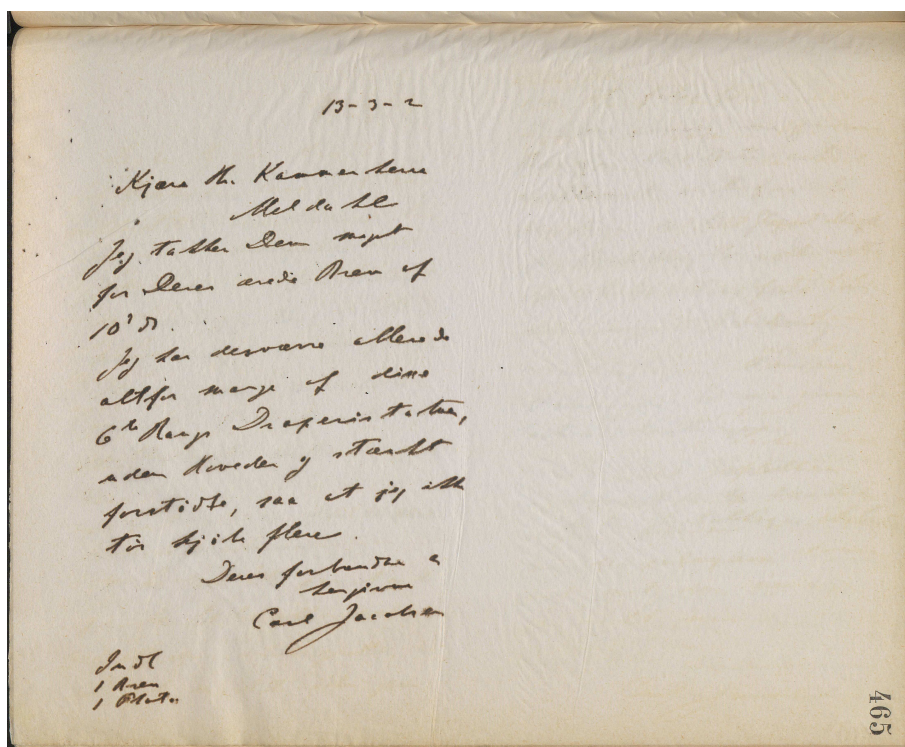 13-3-2
Kjære Hr. Kammerherre
Meldahl
Jeg takker Dem meget
for Deres ærede Brev af
10' ds.
Jeg har desværre allerede
altfor mange af disse
6te Rangs Draperistatuer,
uden Hoveder og stærkt
forstødte, saa at jeg ikke
tør kjøbe flere.
Deres forbundne og
hengivne
Carl Jacobsen
Indl
1 Brev
1 Photo.
465